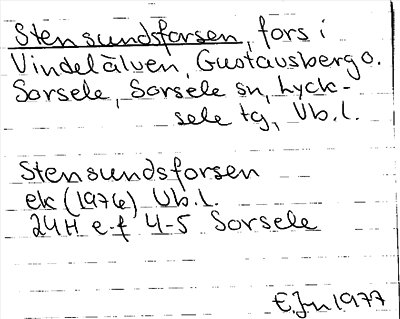 Stensundsforsen, fors i
Vindelälven, Gustavsberg o.
Sorsele, Sorsele sn, Lyck-
sele tg, Vb.l.
Stensundsforsen
ek (1976) Vb.l.
24H e-f 4-5 Sorsele
E.Jn 1977